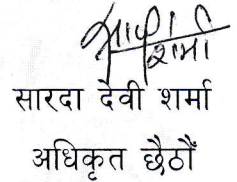 शर्मा
सारदा देवी शर्मा
अधिकृत छैठौँ